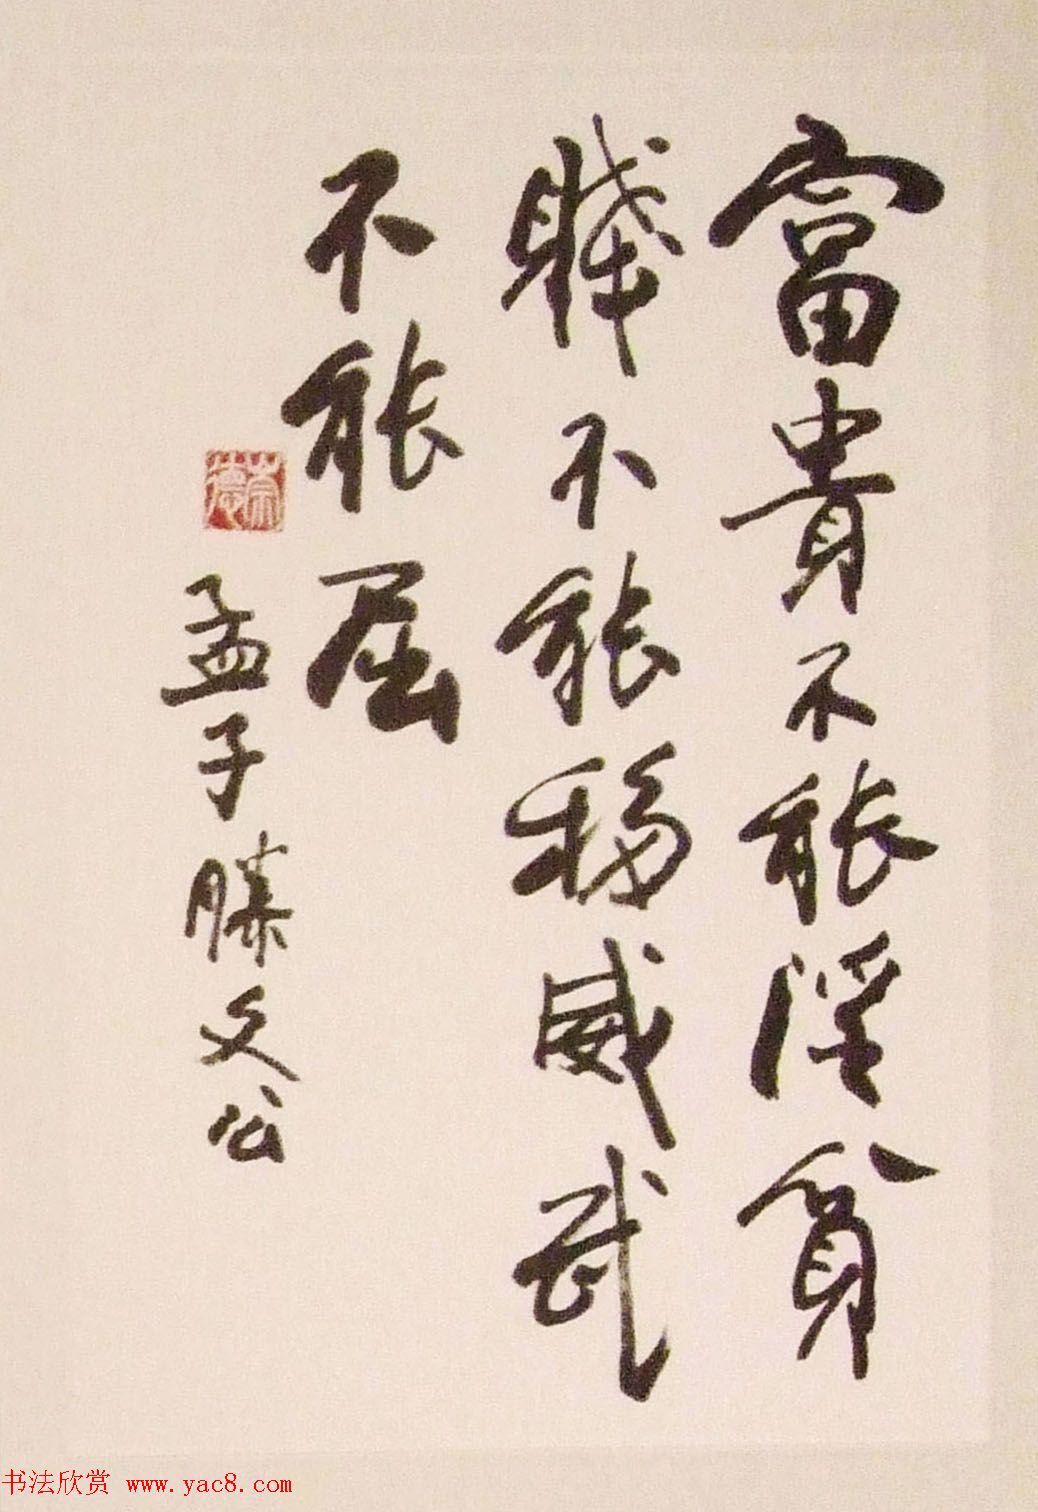 富貴不能淫貧
賤不能移威武
不能屈
孟子滕文公
崇德
书法欣赏 www.yac8.com